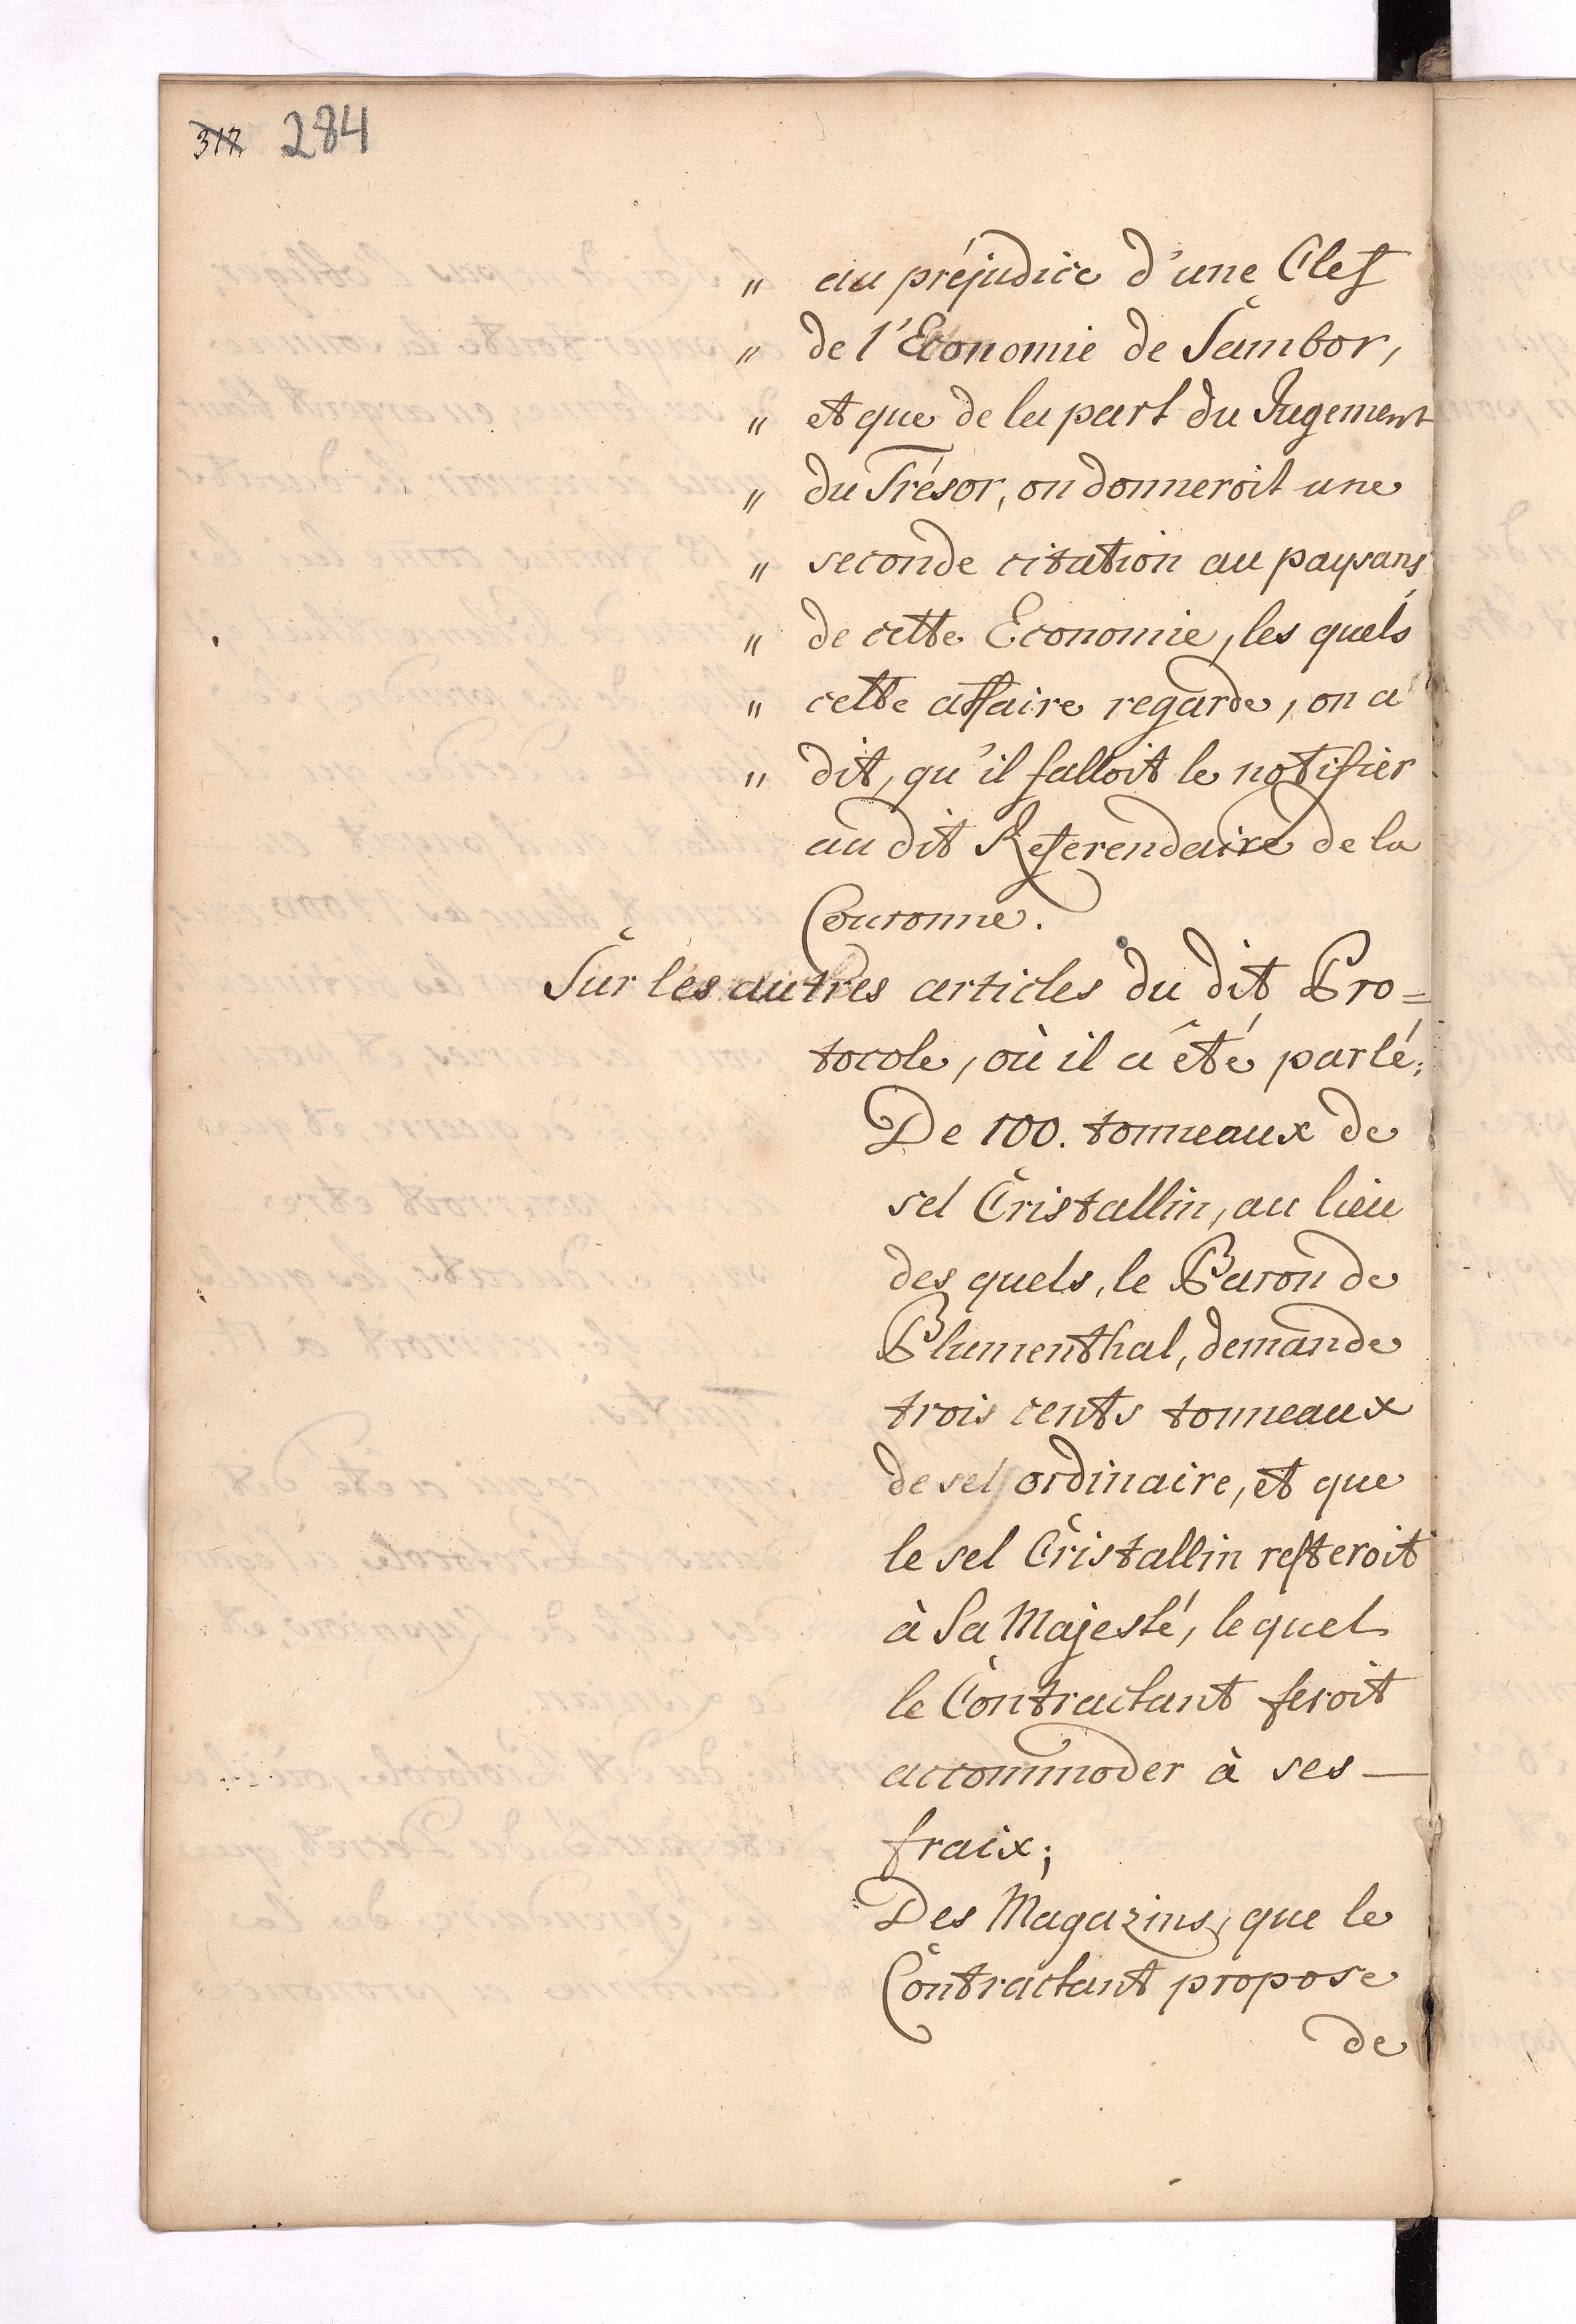 317. 284
„ au préjudice d'une Clef
„ de l'Economie de Sambor,
„ et que de la part du Jugement
„ du Trésor, on donneroit une
„ seconde citation au paysans
„ de cette Economie, les quels
„ cette affaire regarde, on a
„ dit, qu'il falloit le notifier
au dit Referendaire de la
Couronne.
Sur les autres articles du dit Pro=
tocole, où il a êté parlé;
De 100. tonneaux de
sel Cristallin, au lieu
des quels, le Baron de
Blumenthal, demande
trois cents tonneaux
de sel ordinaire, et que
le sel Cristallin resteroit
à Sa Majesté, le quel
le Contractant feroit
accommoder à ses —
fraix;
Des Magazins, que le
Contractant propose
de